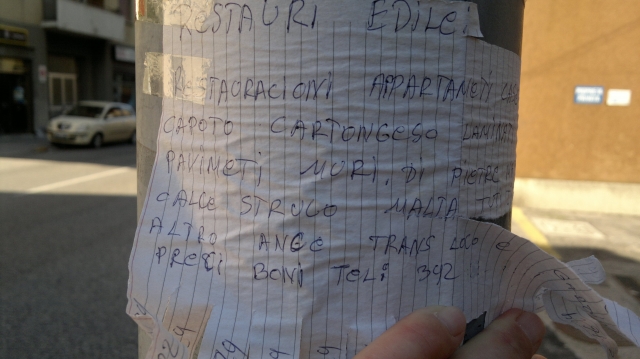 RESTAURI EDILE
RESTAORACIONI APPARTAMETI
CAPOTO CARTONGESO LAMINATI
PAVIMETI MURI. DI PIETRE
CALCE STRUCO MALTA
ALTRO ANCE TRANSLOCO E
PREZI BONI TEL: 392